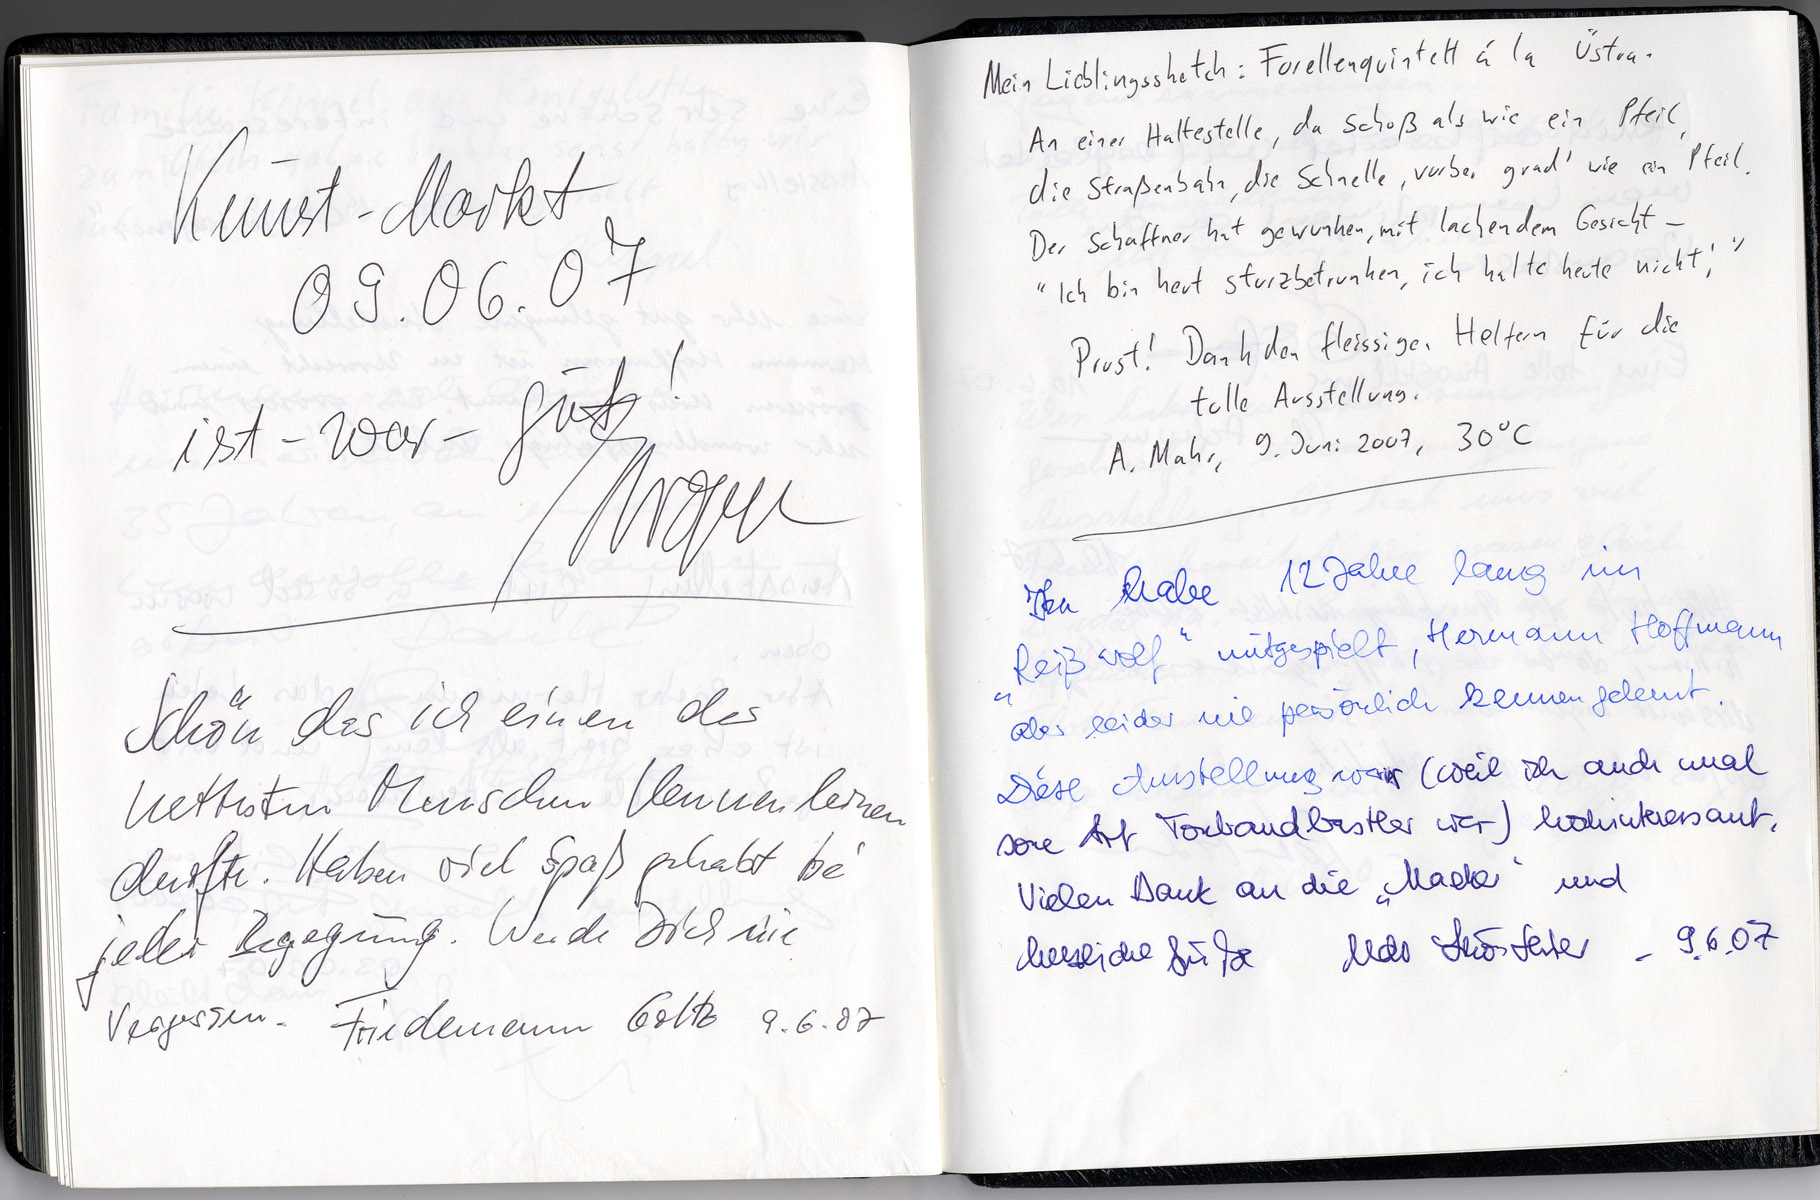 Kunst-Markt
09.06.07
ist - war - gut!
Schön das ich einen des
nettesten Menschen kennenlernen
durfte. Haben viel Spaß gehabt bei
jeder Begegnung. Werde Dich nie
Vergessen. Friedemann 9.6.07
Mein Lieblingssketch: Forellenquintett á la Üstra.
An einer Haltestelle, da schoß als wie ein Pfeil,
die Straßenbahn, die Schnelle, vorbei grad' wie ein Pfeil.
Der Schaffner hat gewunken, mit lachendem Gesicht –
"Ich bin heut sturzbetrunken, ich halte heute nicht!"
Prost! Dank den fleissigen Helfern für die
tolle Ausstellung.
A. Mahr, 9. Juni 2007, 30°C
Ich habe 12 Jahre lang im
„Reißwolf“ mitgespielt, Hermann Hoffmann
aber leider nie persönlich kennengelernt.
Diese Ausstellung war (weil ich auch mal
sone Art Tonbandbastler war) hochinteressant.
Vielen Dank an die „Macher“ und
herzliche Grüße Udo - 9.6.07